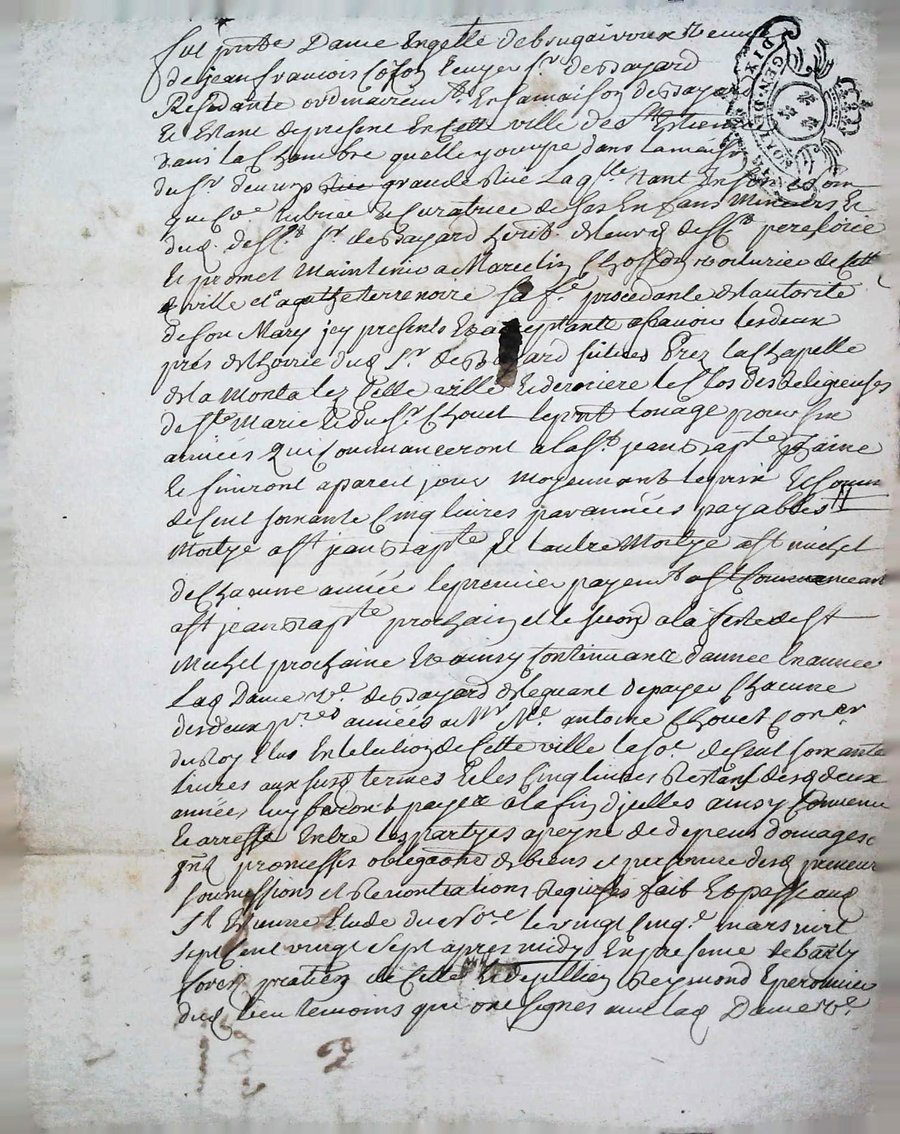 fut pnte Dame Engelle Debrugairoux veuve
de jean francois Cozon Ecuyer Sr de Bayard
Residante ordinairemt En sa maison de Bayard
Et Estant de present En cette ville de St Estienne
dans la Chambre quelle y ocupe dans la maison
du Sr grande Rue Laqlle tant En son nom
que Coe tutrice Et Curatrice de ses Enfans Mineurs Et
dud. deft Sr de Bayard herit. de leurd. deft pere
Et promet Maintenir a Marcelin voiturier de Cette
ville Et agathe terrenoire sa fe procedante de lautorité
de son Mary jcy presents Et acceptants assavoir les deux
prés de dud Sr de Bayard situés Prez la Chapelle
de la Montat lez Cette ville Et derriere le Clos des Religieuses
de Ste Marie Et du Sr Chovet le pnt louage pour six
années qui Commanceront a la St jean Bapte prochaine
Et finiront a pareil jour Moyennant le prix Et Somme
de Cent soixante Cinq livres par années payables
Moitye a St jean Bapte Et lautre Moitye a St michel
de Chacune année le premier payemt
a St jean Bapte prochain et le second a la feste de St
Michel prochaine Et ainsy Continuant d'année En année
Lad Dame ve de Bayard delegant de payer Chacune
des deux pres années a Mr Me antoine Chovet Coner
du Roy Elus En lelection de Cette ville la soe de Cent soixante
livres aux susd termes Et les Cinq livres Restans desd deux
années luy seront payer a la fin djcelles ainsy Convenu
Et arresté Entre les partyes a peyne de depens domages
promesses obligaons de biens et personne desd preneur
soumissions et Renontiations Requises fait Et passé aud
St Etienne Etude du Nore le vingt cinqe mars mil
sept cent vingt sept apres midy En presence de
praticien de Cette Et de jullien Reymond Eperonnier
dud lieu temoins qui ont signés avec lad Dame ve